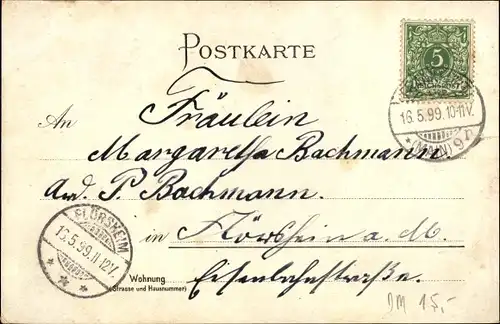 POSTKARTE
5
16.5.99.10-11V.
(MAIN) 9
An Fräulein
Margaretha Bachmann
Ad. P. Bachmann.
in Flörsheim a. M.
Eisenbahnstraße.
FLÖRSHEIM
16.5.99.11-12V.
Wohnung
(Strasse und Hausnummer)
DM 15,-